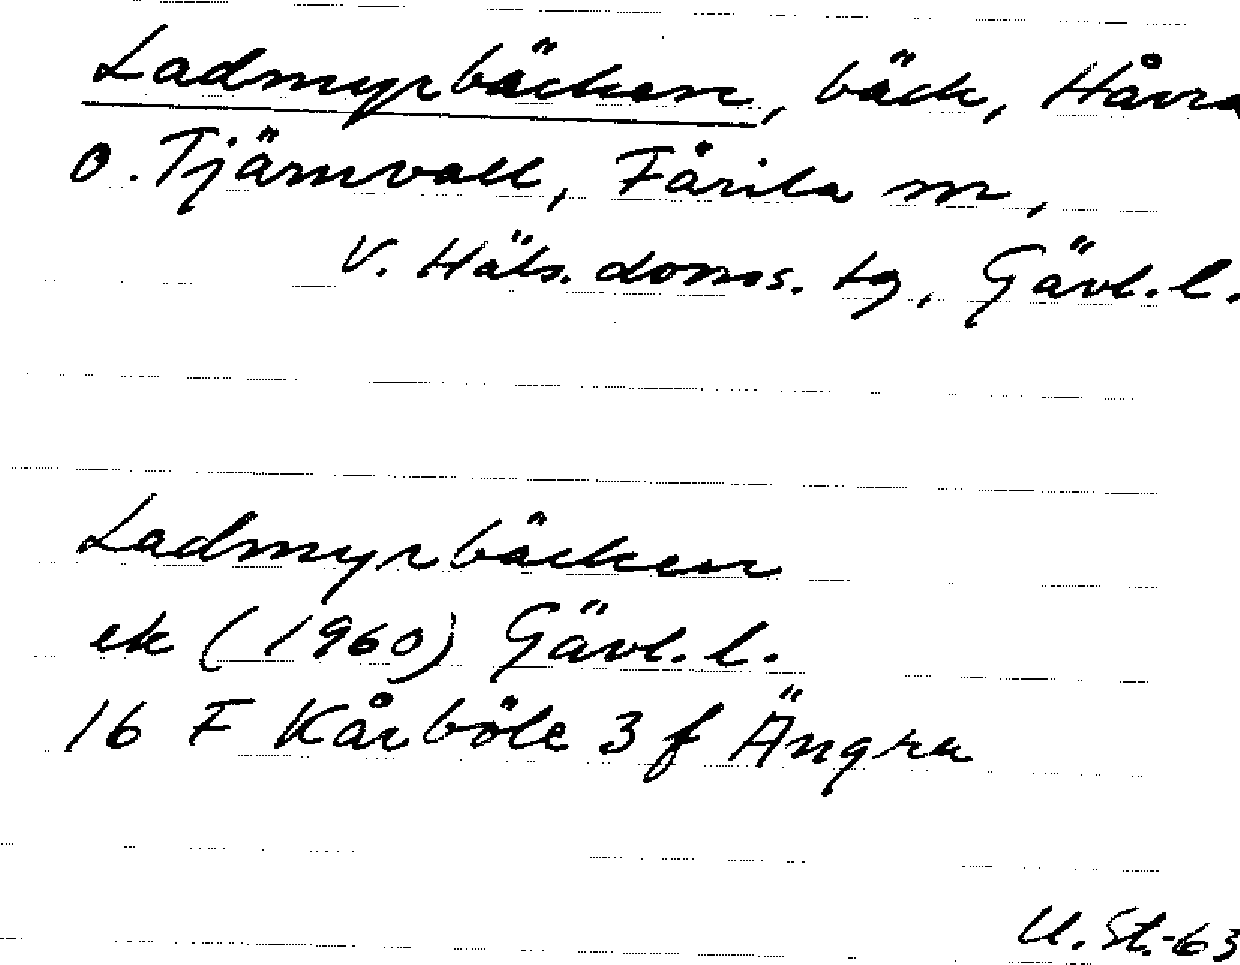 Ladmyrbäcken, bäck, Hårra
o. Tjärnvall, Färila sn,
V. Häls. doms. tg, Gävl. l.
Ladmyrbäcken
ek (1960) Gävl. l.
16 F Kårböle 3 f Ängra
U. St.-63